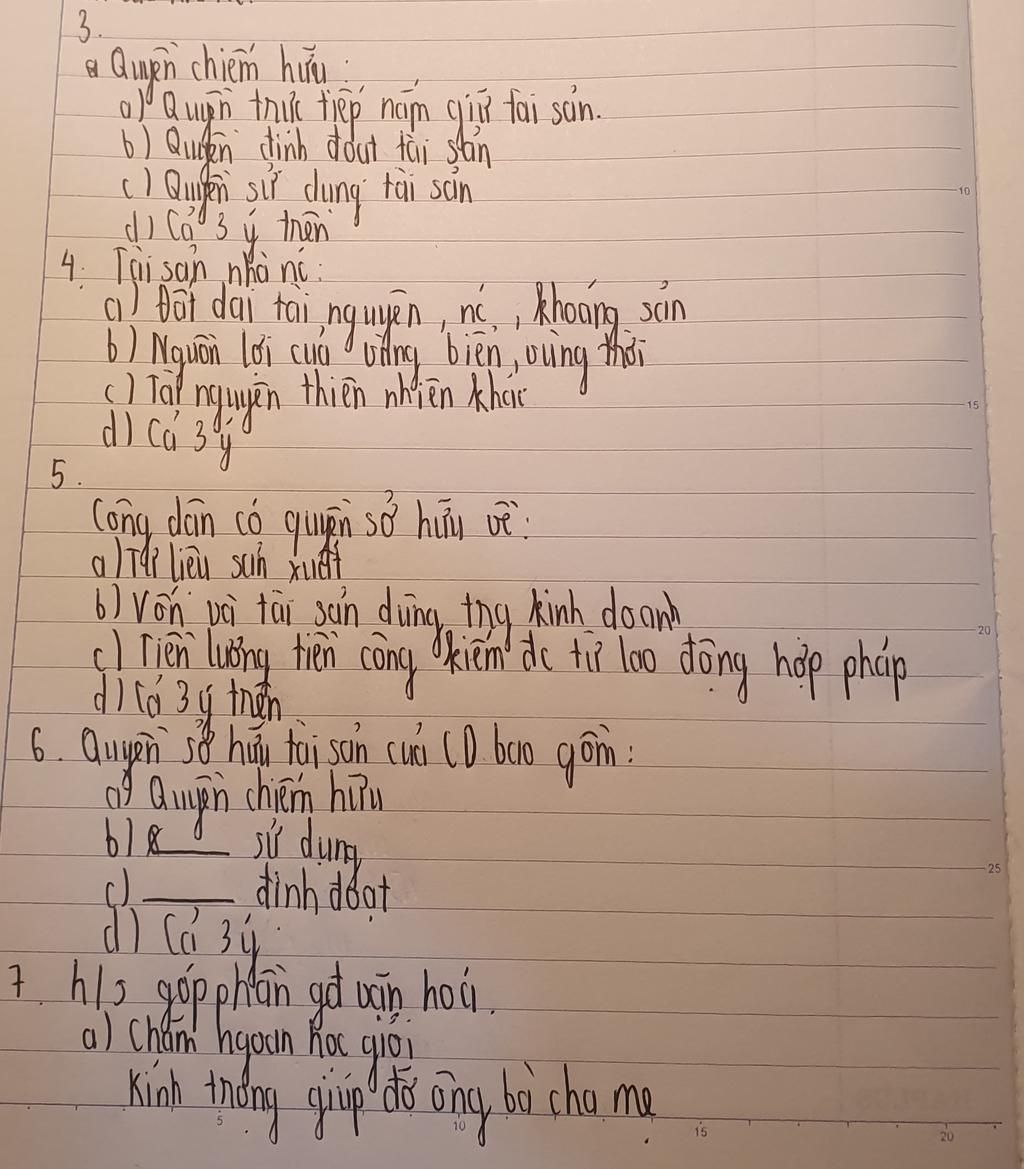 3.
Quyền chiếm hữu:
a) Quyền trực tiếp nắm giữ tài sản.
b) Quyền định đoạt tài sản
c) Quyền sử dụng tài sản
d) Cả 3 ý trên
4. Tài sản nhà nc:
a) Đất đai tài nguyên, nc, khoáng sản
b) Nguồn lợi của vùng biển, vùng thời
c) Tài nguyên thiên nhiên khác
d) Cả 3 ý
5.
Công dân có quyền sở hữu về:
a) Tư liệu sản xuất
b) Vốn và tài sản dùng tng kinh doanh
c) Tiền lương tiền công kiếm dc từ lao động hợp pháp
d) Cả 3 ý trên
6. Quyền sở hữu tài sản của CD bao gồm:
a) Quyền chiếm hữu
b) ____ sử dụng
c) ____ định đoạt
d) Cả 3 ý
7. h/s góp phần gđ văn hoá.
a) Chăm ngoan học giỏi
Kính trọng giúp đỡ ông bà cha mẹ
10
15
20
25
5
10
15
20